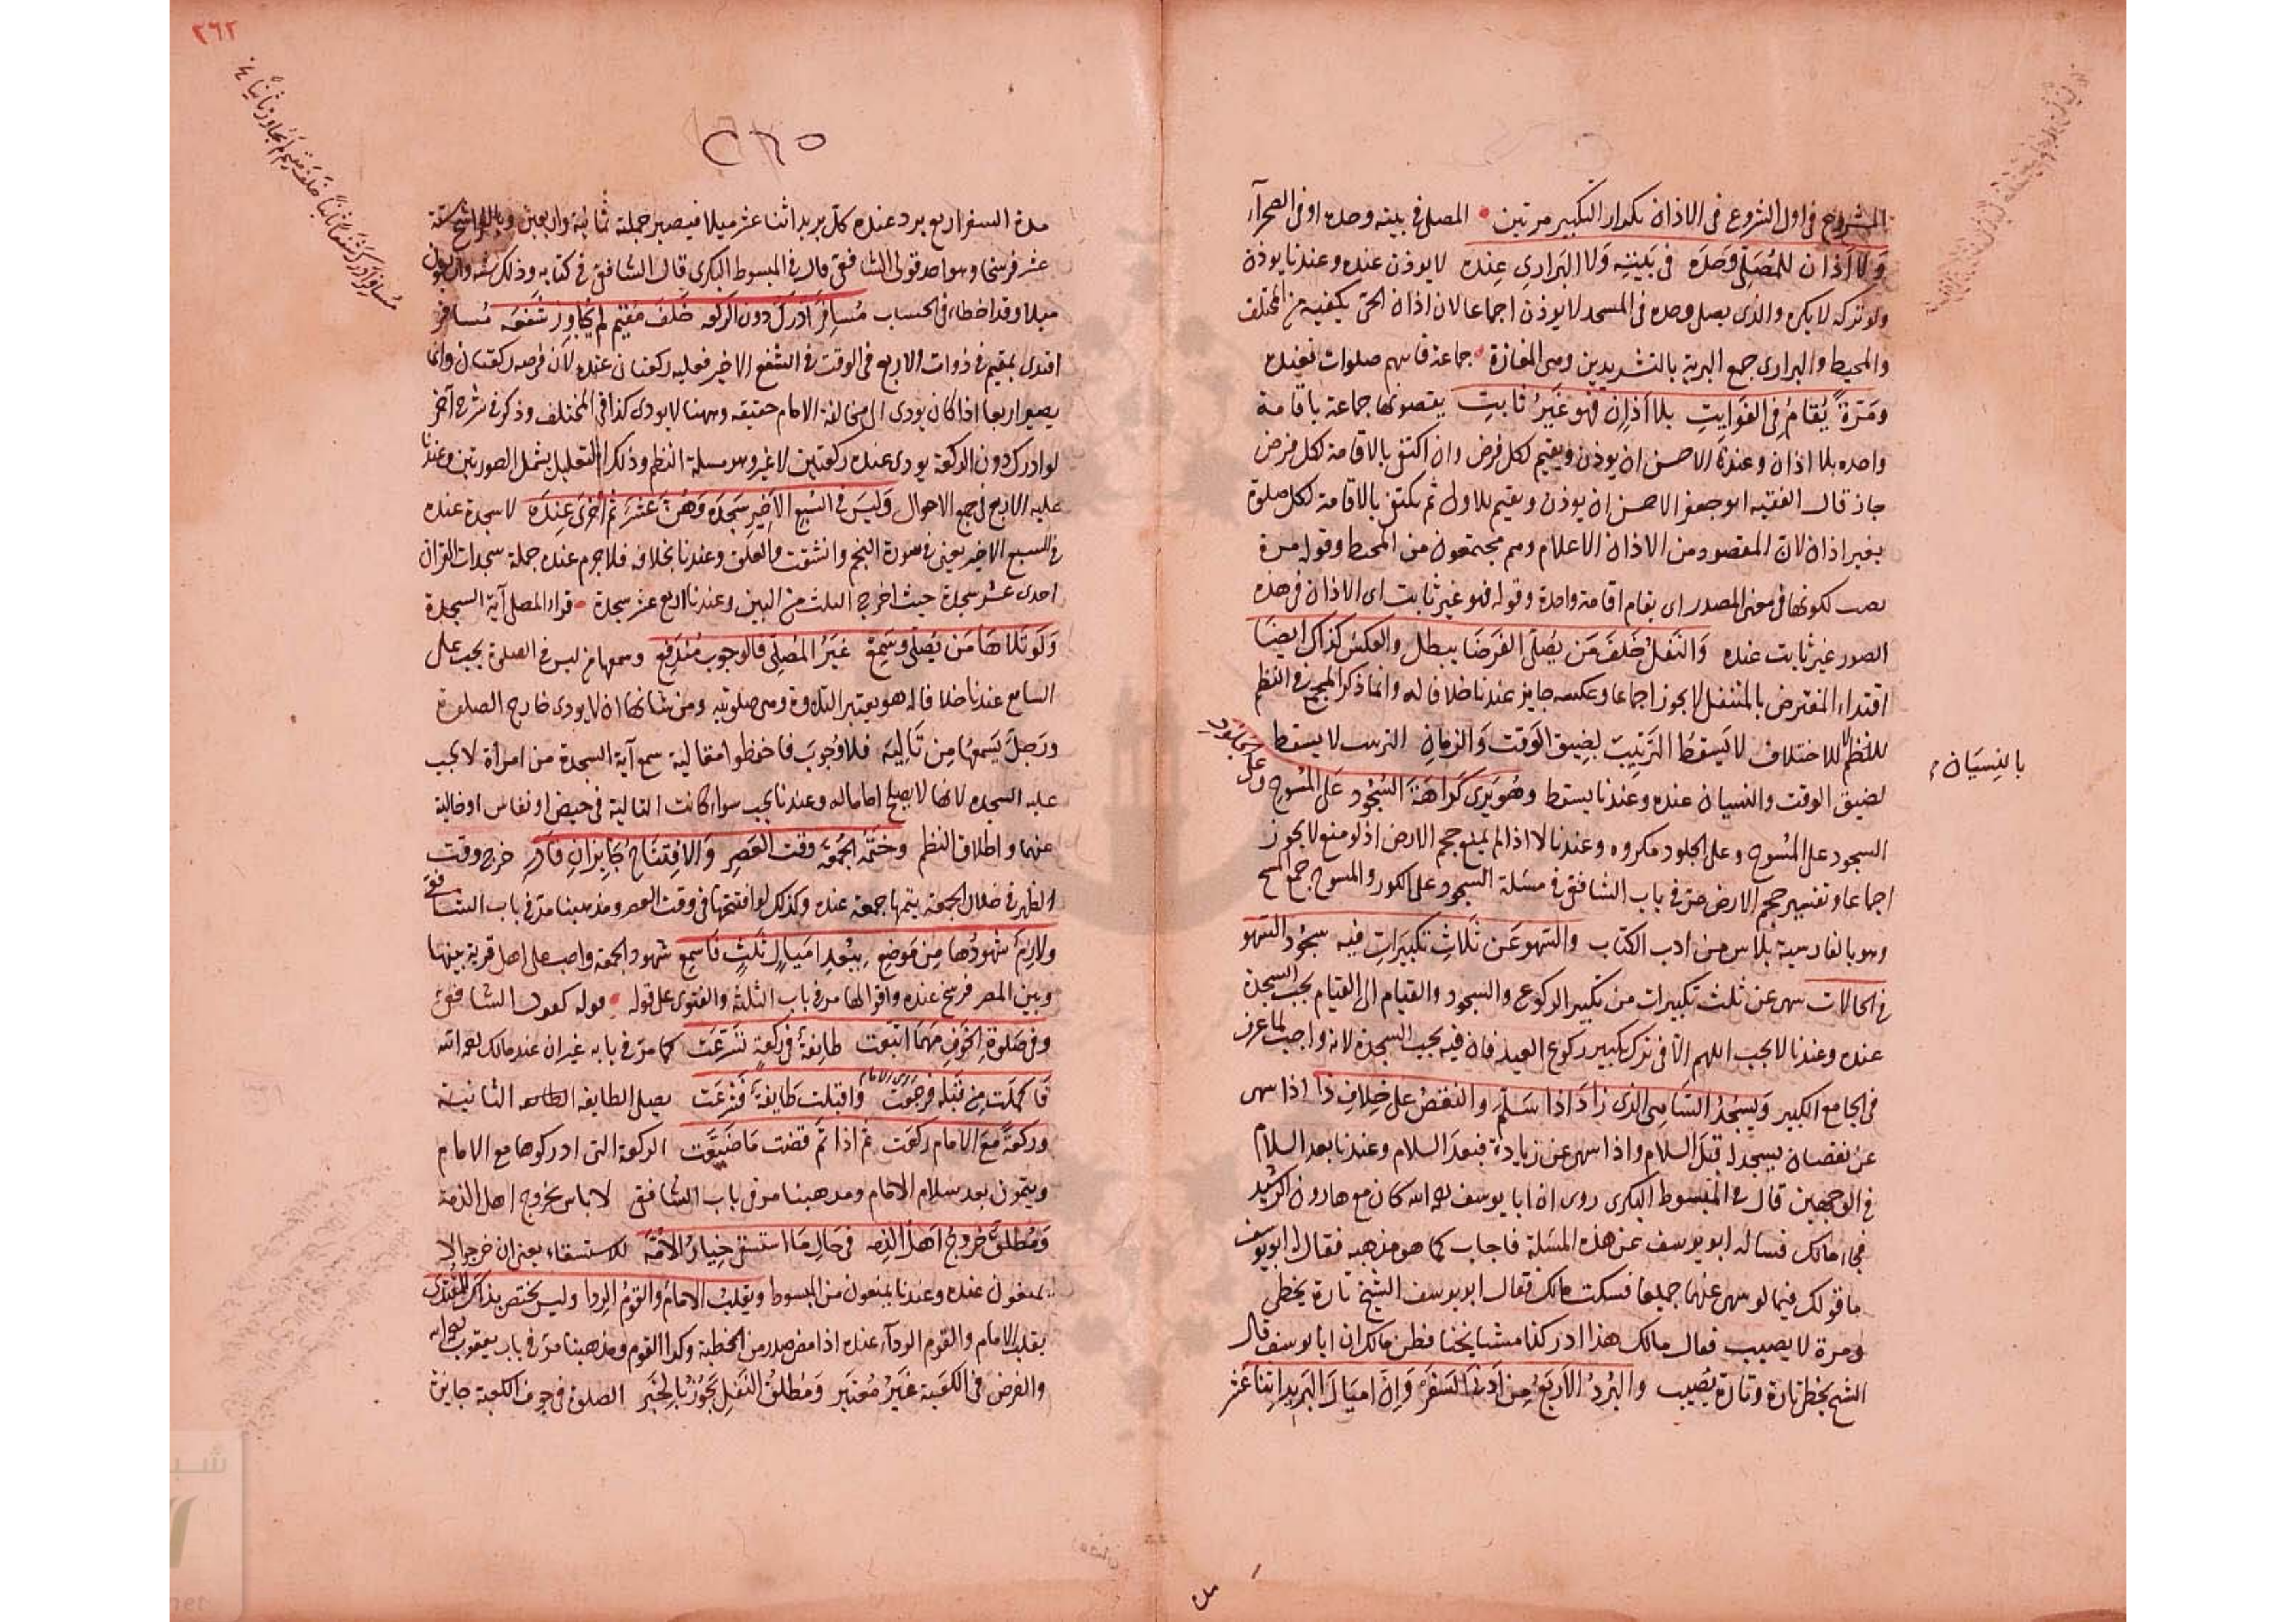 المشروع في اول الشروع في الاذان تكرار التكبير مرتين المصلي في بيته وحده او في الصحراء
وَلا اَذان للمُصَلّي وَحدَه في بَيتِه وَلا البَراري عِنده لا يوذن عنده وعندنا يوذن
ولو تركه لا يكره والذي يصلي وحده في المسجد لا يوذن اجماعا لان اذان الحي يكفيه من المختلف
والمحيط والبراري جمع البرية بالتشديدين وهي المفازة جماعة فاتتهم صلوات فعنده
ومَرّةً يُقامُ في الفَوايتِ بلا اَذانٍ فهو غَيرُ ثابتِ يقضونها جماعة باقامة
واحده بلا اذان وعندنا الاحسن ان يوذن ويقيم لكل فرض وان اكتفي بالاقامة لكل فرض
جاز قال الفقيه ابو جعفر الاحسن ان يوذن ويقيم للاول ثم يكتفي بالاقامة لكل صلوة
بغير اذان لان المقصود من الاذان الاعلام وهم مجتمعون من المحيط وقوله مرة
نصب لكونها في معنى المصدر اي يقام اقامة واحدة وقوله فهو غير ثابت اي الاذان في هذه
الصور غير ثابت عنده وَالنفلُ خَلفَ مَن يُصلّي الفَرضَا يبطل والعكس كذاك ايضَا
اقتداء المفترض بالمتنفل لا يجوز اجماعا وعكسه جايز عندنا خلافا له وانما ذكر المجمع في النظم
للنظم لا للاختلاف لا يَسقطُ التَرتِيبُ بِضِيق الوَقت وَالزمانِ الترتيب لا يسقط
بالنِسيَان
لضيق الوقت والنسيان عنده وعندنا يسقط وهُو يَرى كَراهَةَ السُجُود عَلى المُسُوح وعلى الجُلُود
السجود على المُسُوح وعلى الجلود مكروه وعندنا لا اذا لم يمنع حجم الارض اذ لو منع لا يجوز
اجماعا وتفسير حجم الارض مرّ في باب الشافعي في مسئلة السجود على الكور والمسوح جمع المسح
وهو بالفارسية پلاس من ادب الكتاب والسَهو عَن ثَلاثِ تكبيرَاتِ فيه سجُود السَهو
في الحالات سهى عن ثلث تكبيرات من تكبير الركوع والسجود والقيام الى القيام يجب السجدة
عنده وعندنا لا يجب اللهم الا في ترك تكبير ركوع العيد فان فيه يجب السجدة لانه واجب لما عرف
في الجامع الكبير وَيسجُدُ السّاهي الذي زادَ اذا سَلّم والنقصُ على خِلافِ ذا اذا سهى
عن نقصان يسجد قبل السلام واذا سهى عن زيادة فبعد السلام وعندنا بعد السلام
في الوجهين قال في المبسوط البكري روي ان ابا يوسف رحمه الله كان مع هارون الرشيد
فجاء مالك فساله ابو يوسف عن هذه المسئلة فاجاب كما هو مذهبه فقال ابو يوسف
ما قولك فيما لو سهى عنهما جميعا فسكت مالك فقال ابو يوسف الشيخ تارة يخطي
ومرة لا يصيب فقال مالك هذا ادركنا مشايخنا فظن مالك ان ابا يوسف قال
الشيخ يخطي تارة وتارة يُصيب والبُردُ الاَربَعُ مِن اَدنى السَفَر وَانّ امْيَالَ البَريد اثنا عَشر
٣٦٢
٢٦٥
مُسافِرٌ اَدرَكَ خَلفَ مقيم لم يجاوز
مدة السفر اربع برد عنده كل بريد اثنا عشر ميلا فيصير جملته ثمانية واربعين وبالفراسخ ستة
عشر فرسخا وهو احد قولي الشافعي قال في المبسوط البكري قال الشافعي في كتابه وذلك ستة واربعون
ميلا وقد اخطا في الحساب مُسافِرٌ اَدرَكَ دون الركعه خَلفَ مُقيم لم يُجاوِز شَفعَه مُسافر
اقتدى بمقيم في ذوات الاربع في الوقت في الشفع الاخير فعليه ركعتان عنده لان فرضه ركعتان وانما
يصير اربعا اذا كان يودي الى مخالفة الامام حقيقة وههنا لا يودي كذا في المختلف وذكر في شرح آخر
لو ادرك دون الركعة يودي عنده ركعتين لا غير وهي مسئلة النظم وذلك التعليل يشمل الصورتين وعندنا
عليه الاربع في جميع الاحوال وَليسَ في السُبع الاَخيرِ سَجدَه وَهنّ عَشرٌ ثم اُخرى عِندَه لا سجدة عنده
في السبع الاخير يعني في سورة النجم وانشقت والعلق وعندنا بخلافه فلا جرم عنده جملة سجدات القران
احدى عشر سجدة حيث اخرج الثلث من البين وعندنا اربع عشر سجدة قراء المصلي آية السجدة
وَلَو تَلاهَا مَن يُصلّي وسَمِعْ غَيرُ المُصلّي فالوجوب مُندَفِع وسمعها من ليس في الصلوة يجب على
السامع عندنا خلافا له هو يعتبر التلاوة وهي صلوتيه ومن شانها ان لا يودي خارج الصلوة
ورَجلٌ يَسمعُها مِن تَالِيَه فلا وُجوبَ فاحفظوا مقاليه سمع آية السجدة من امراة لا يجب
عليه السجده لانها لا يصلح اماما له وعندنا يجب سواء كانت التالية في حيض او نفاس او خالية
عنهما واطلاق النظم وختمُه الجُمعَة وقتَ العَصرِ وَالافتتاحُ جَايزانِ فَادْرِ خرج وقت
الظهر في خلال الجمعة يتمها جمعة عنده وكذلك لو افتتحها في وقت العصر ومذهبنا مرّ في باب الشافعي
ولازمٌ شهُودُها مِن مَوضِعِ بِبُعدِ اميَالٍ ثَلثٍ فَاسمعِ شهود الجمعة واجب على اهل قرية بينها
وبين المصر فرسخ عنده واقوالها مر في باب الثلثة والفتوى على قوله قوله كقول الشافعي
وفي صَلوة الخَوفِ مَهمَا اتبَعت طائِفةٌ في ركعة تشرّعَت كما مرّ في بابه غير ان عند مالك رحمه الله
فَاكمَلت مِن قَبله فرجَعت واقبلت طَايفةٌ فَشرَعَت يصلي الطايفه الثانية
وركعةً مَعَ الامام ركعَت ثم اذا تمّ قضت مَا ضَيّعَت الركعة التي ادركوها مع الامام
ويتمون بعد سلام الامام ومذهبنا مر في باب الشافعي لا باس بخروج اهل الذمة
وَمُطلقٌ خروجُ اَهل الذِمه في حَالِ مَا استسقى خِيارُ الاُمّه للاستسقاء يعني ان خرجوا لا
يمنعون عنده وعندنا يمنعون من المبسوط ويَقلِبُ الامامُ والقومُ الرِدا وليس يختص بذاك المقتدى
يقلب الامام والقوم الرداء عنده اذا مضى صدر من الخطبة وكذا القوم ومذهبنا مرّ في باب يعقوب رحمه الله
والفرض في الكعبة غَيرُ مُعتبَر وَمُطلقُ النَفلِ يَجُوزُ بِالخَبَر الصلوة في جوف الكعبة جايزة